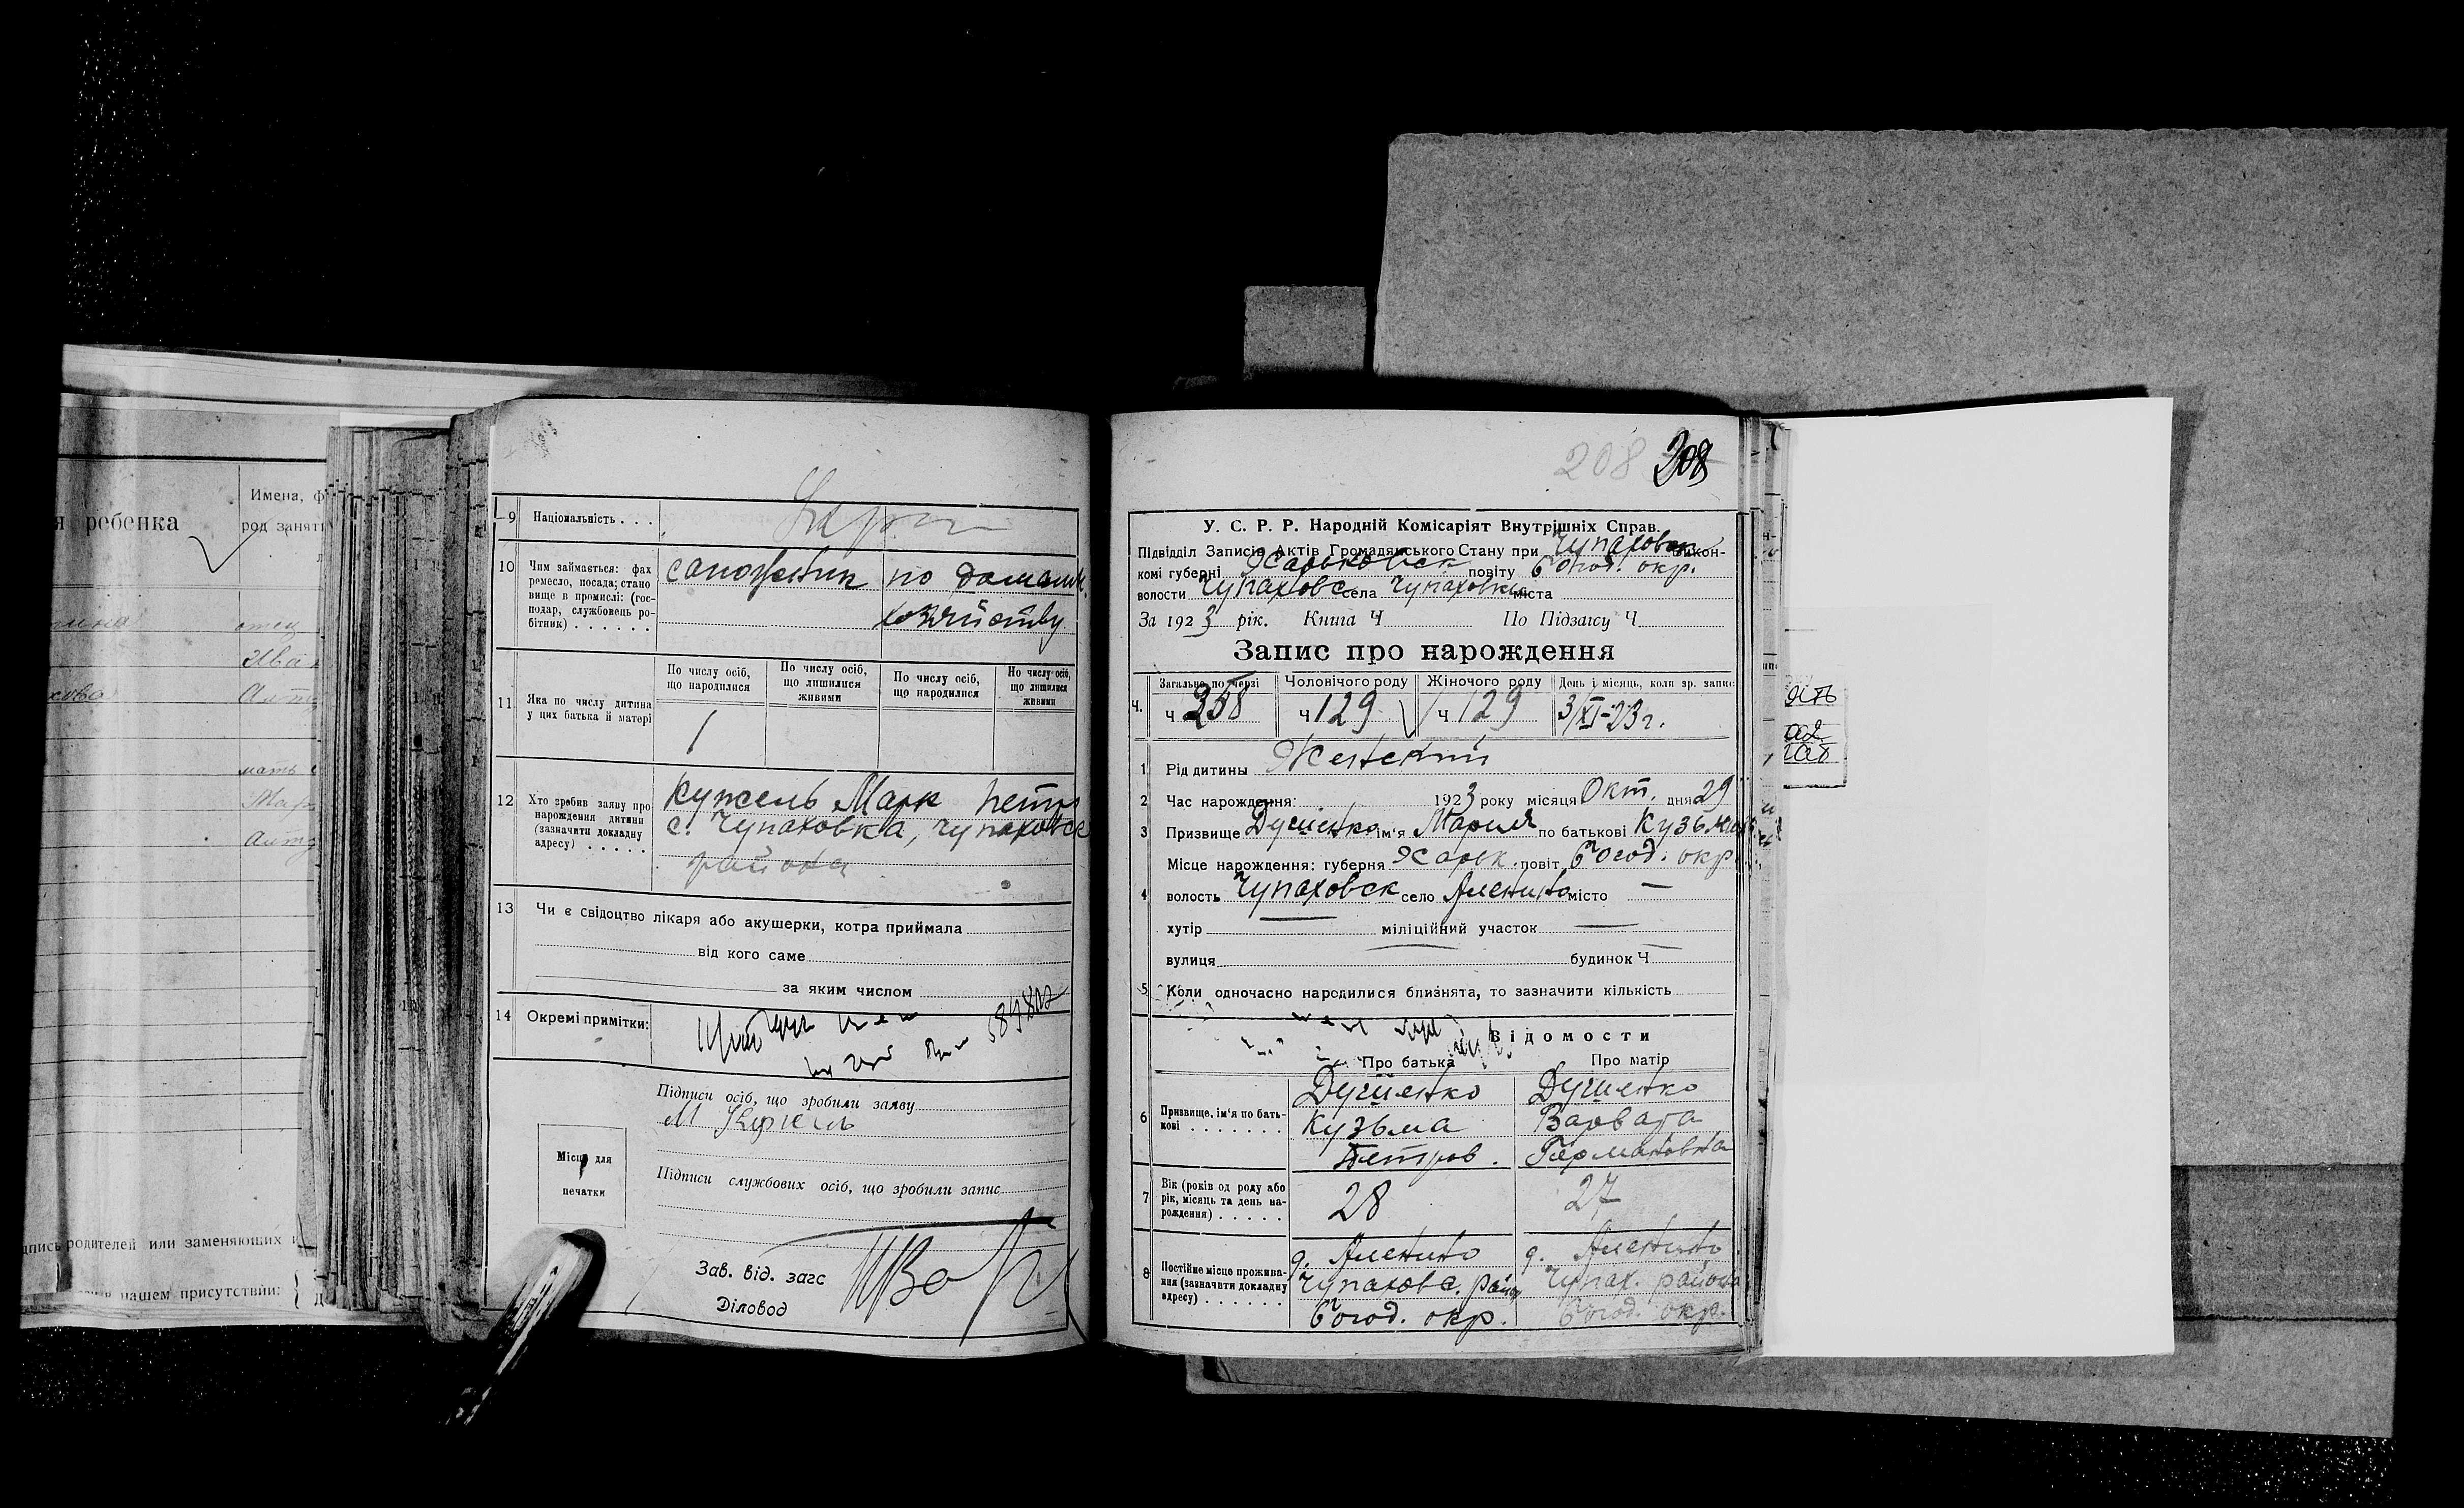 я ребенка
Имена, ф
род заняти
отец
Ива
мать
дпись родителей или заменяющих
в нашем присутствии:
9 Національність . . .
10 Чим займається: фах
ремесло, посада; стано
вище в промислі: (гос-
подар, службовець ро-
бітник) . . . . . .
сапожник
по домашн.
хозяйству
11 Яка по числу дитина
у цих батька й матері
По числу осіб,
що народилися
По числу осіб,
що лишилися
живими
По числу осіб,
що народилися
По числу осіб,
що лишилися
живими
1
12 Хто зробив заяву про
нарождення дитини
(зазначити докладну
адресу) . . . . .
Кужель Марк Петр
с. Чупаховка, Чупаховск
района
13 Чи є свідоцтво лікаря або акушерки, котра приймала
від кого саме
за яким числом
14 Окремі примітки:
Підписи осіб, що зробили заяву
М Кужель
Місце для
печатки
Підписи службових осіб, що зробили запис
Зав. від. загс
Діловод
208 208
У. С. Р. Р. Народній Комісаріят Внутрішніх Справ.
Підвідділ Записів Актів Громадянського Стану при Чупаховск Викон-
комі губерні Харьковск повіту Богод. окр.
волости Чупаховс села Чупаховка міста
За 1923 рік. Книга Ч По Підзагсу Ч
Запис про нарождення
Ч.
Загально по черзі
Чоловічого роду
Жіночого роду
День і місяць, коли зр. запис
Ч 258
Ч 129
Ч 129
3/XI-23г.
1 Рід дитини Женский
2 Час нарождення: 1923 року місяця Окт. дня 29
3 Призвище Душенко ім'я Мария по батькові Кузьмов
4 Місце нарождення: губерня Харьк. повіт Богод. окр.
волость Чупаховск село Аленино місто —
хутір міліційний участок
вулиця будинок Ч
5 Коли одночасно народилися близнята, то зазначити кількість
Відомости
Про батька
Про матір
6 Призвище, ім'я по бать-
кові . . . . . . . .
Душенко
Кузьма
Петров.
Душенко
Варвара
Германовна
7 Вік (років од роду або
рік, місяць та день на-
рождення) . . . . . .
28
27
8 Постійне місце прожива-
ння (зазначити докладну
адресу) . . . . . . .
д. Аленино
Чупахове. район
Богод. окр.
д. Аленино
Чупах. района
Богод. окр.